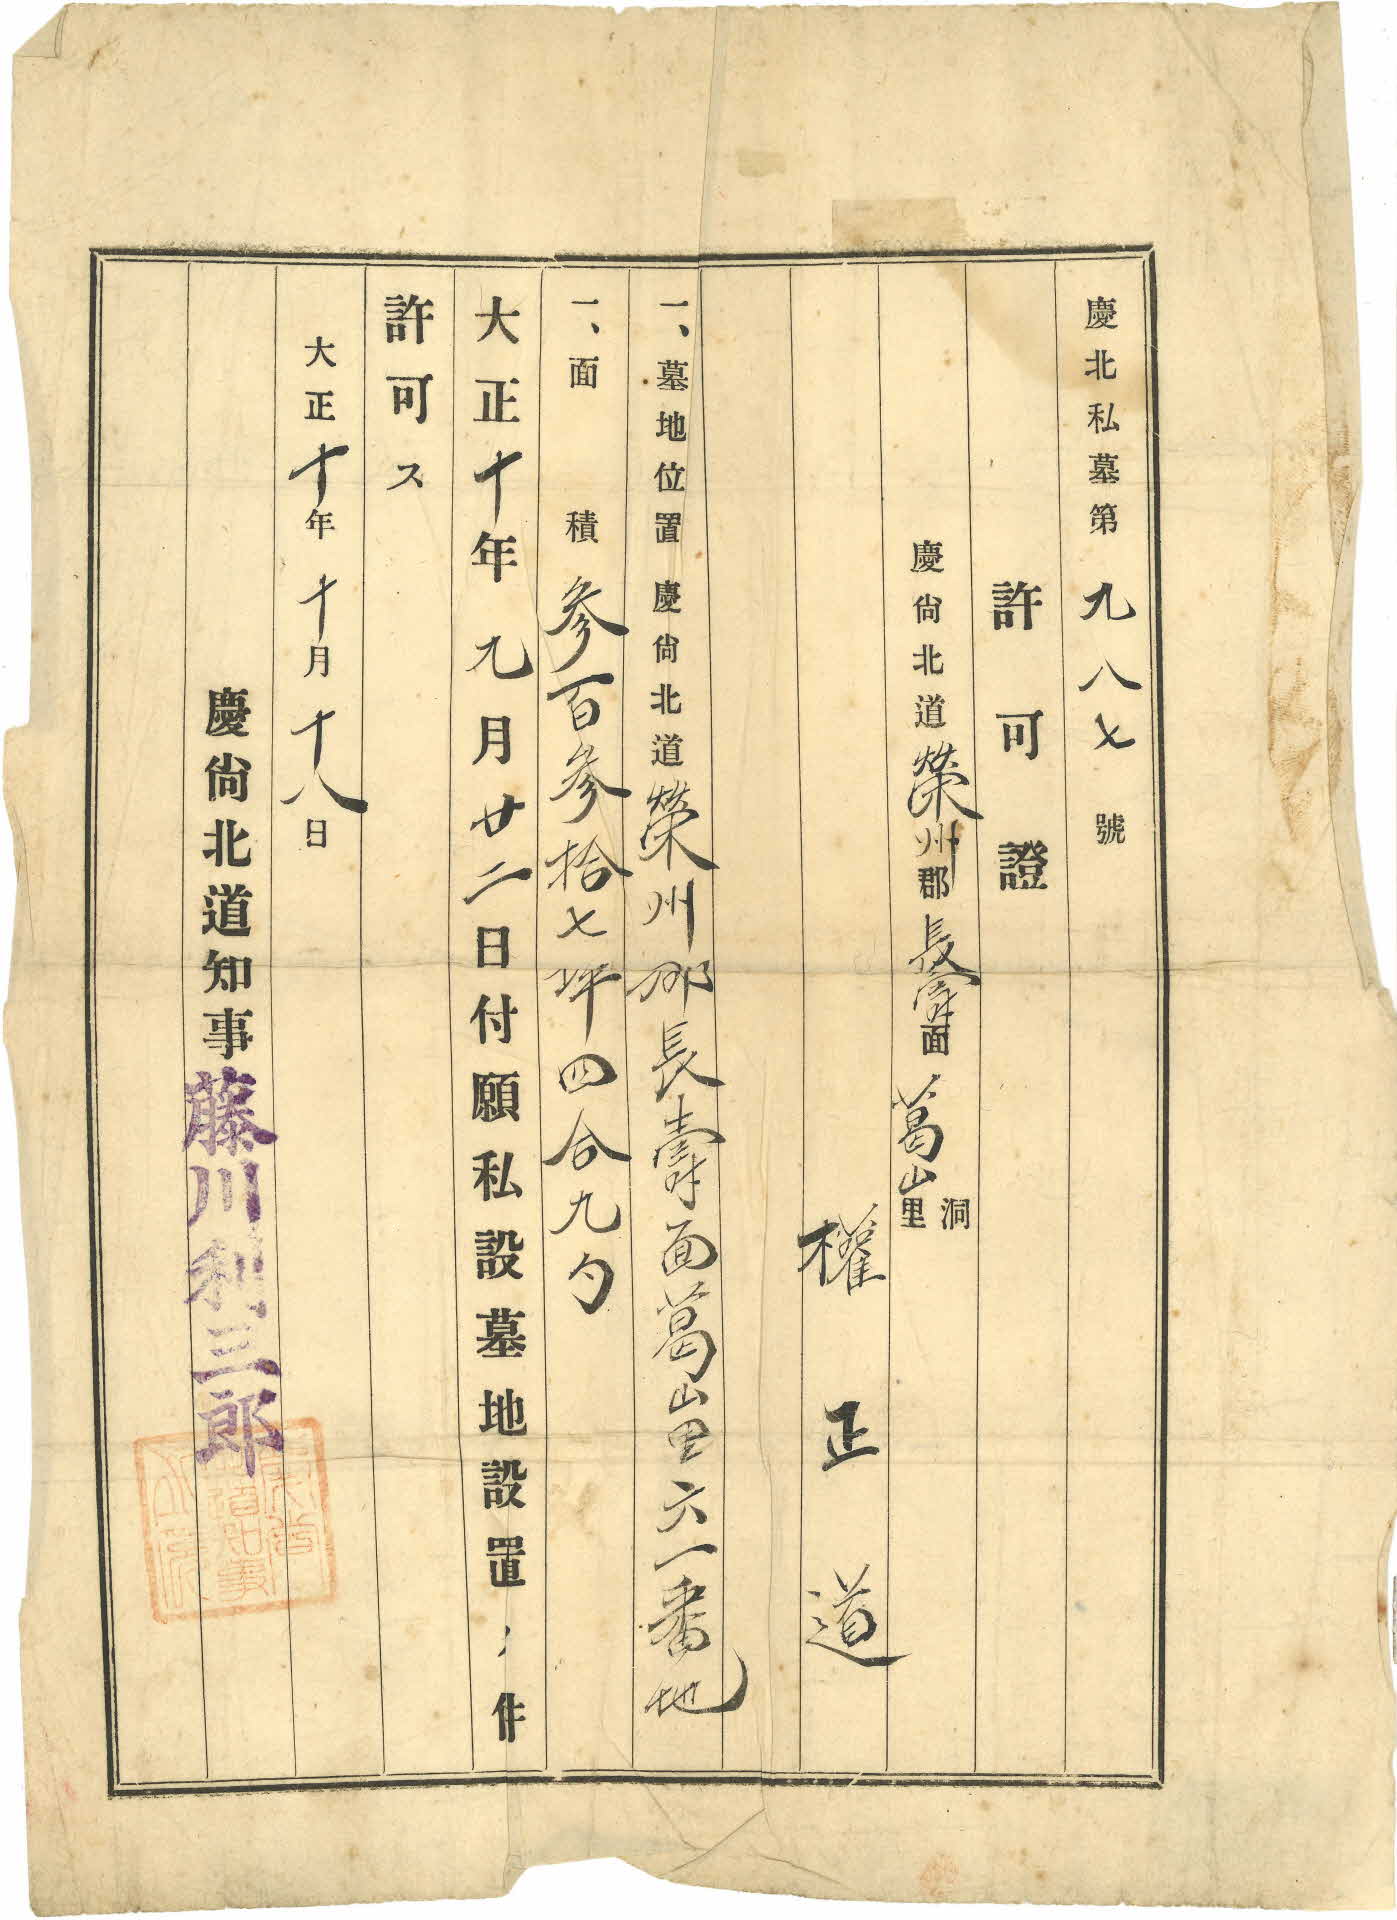 慶北私墓第九八七號
許可證
慶尙北道榮州郡長壽面葛山洞里
權正道
一、墓地位置 慶尙北道榮州郡長壽面葛山里六一番地
一、面積 參百參拾七坪四合九勺
大正十年九月廿二日付願私設墓地設置ノ件
許可ス
大正十年十月十八日
慶尙北道知事藤川利三郎